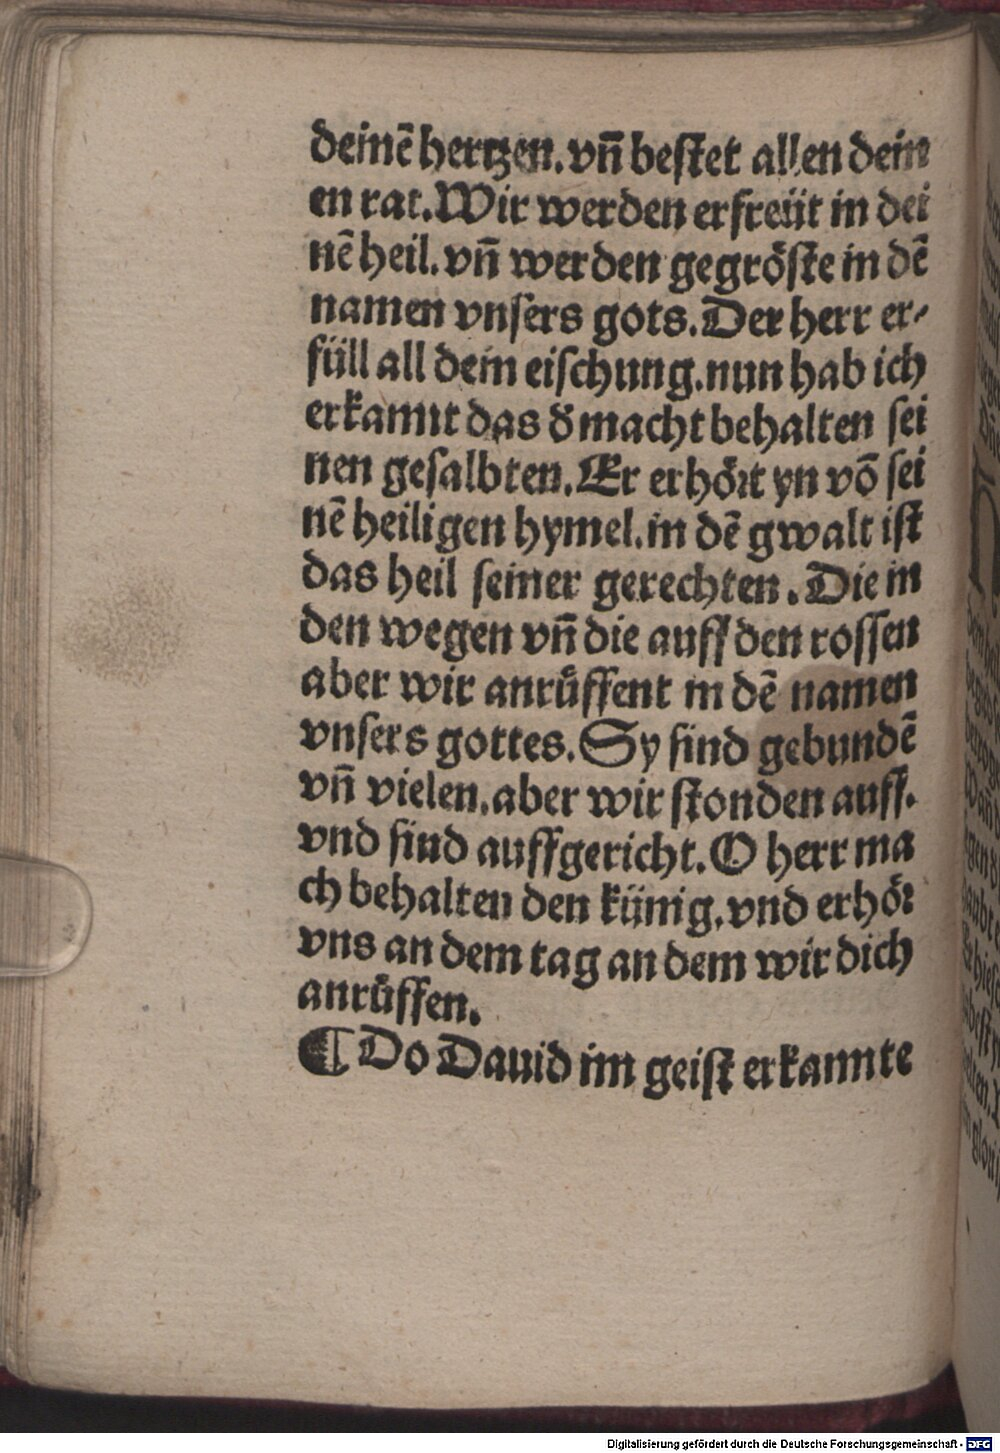 deinē hertzen. vñ bestet allen dein
en rat. Wir werden erfreüt in dei
nē heil. vñ werden gegröste in dē
namen vnsers gots. Der herr er⸗
füll all dein eischung. nun hab ich
erkannt das d̄ macht behalten sei
nen gesalbten. Er erhört yn vō sei
nē heiligen hymel. in dē gwalt ist
das heil seiner gerechten. Die in
den wegen vñ die auff den rossen
aber wir anrůffent in dē namen
vnsers gottes. Sy sind gebundē
vñ vielen. aber wir stonden auff.
vnd sind auffgericht. O herr ma
ch behalten den künig. vnd erhör
vns an dem tag an dem wir dich
anrůffen.
¶ Do Dauid im geist erkannte
Digitalisierung gefördert durch die Deutsche Forschungsgemeinschaft - DFG